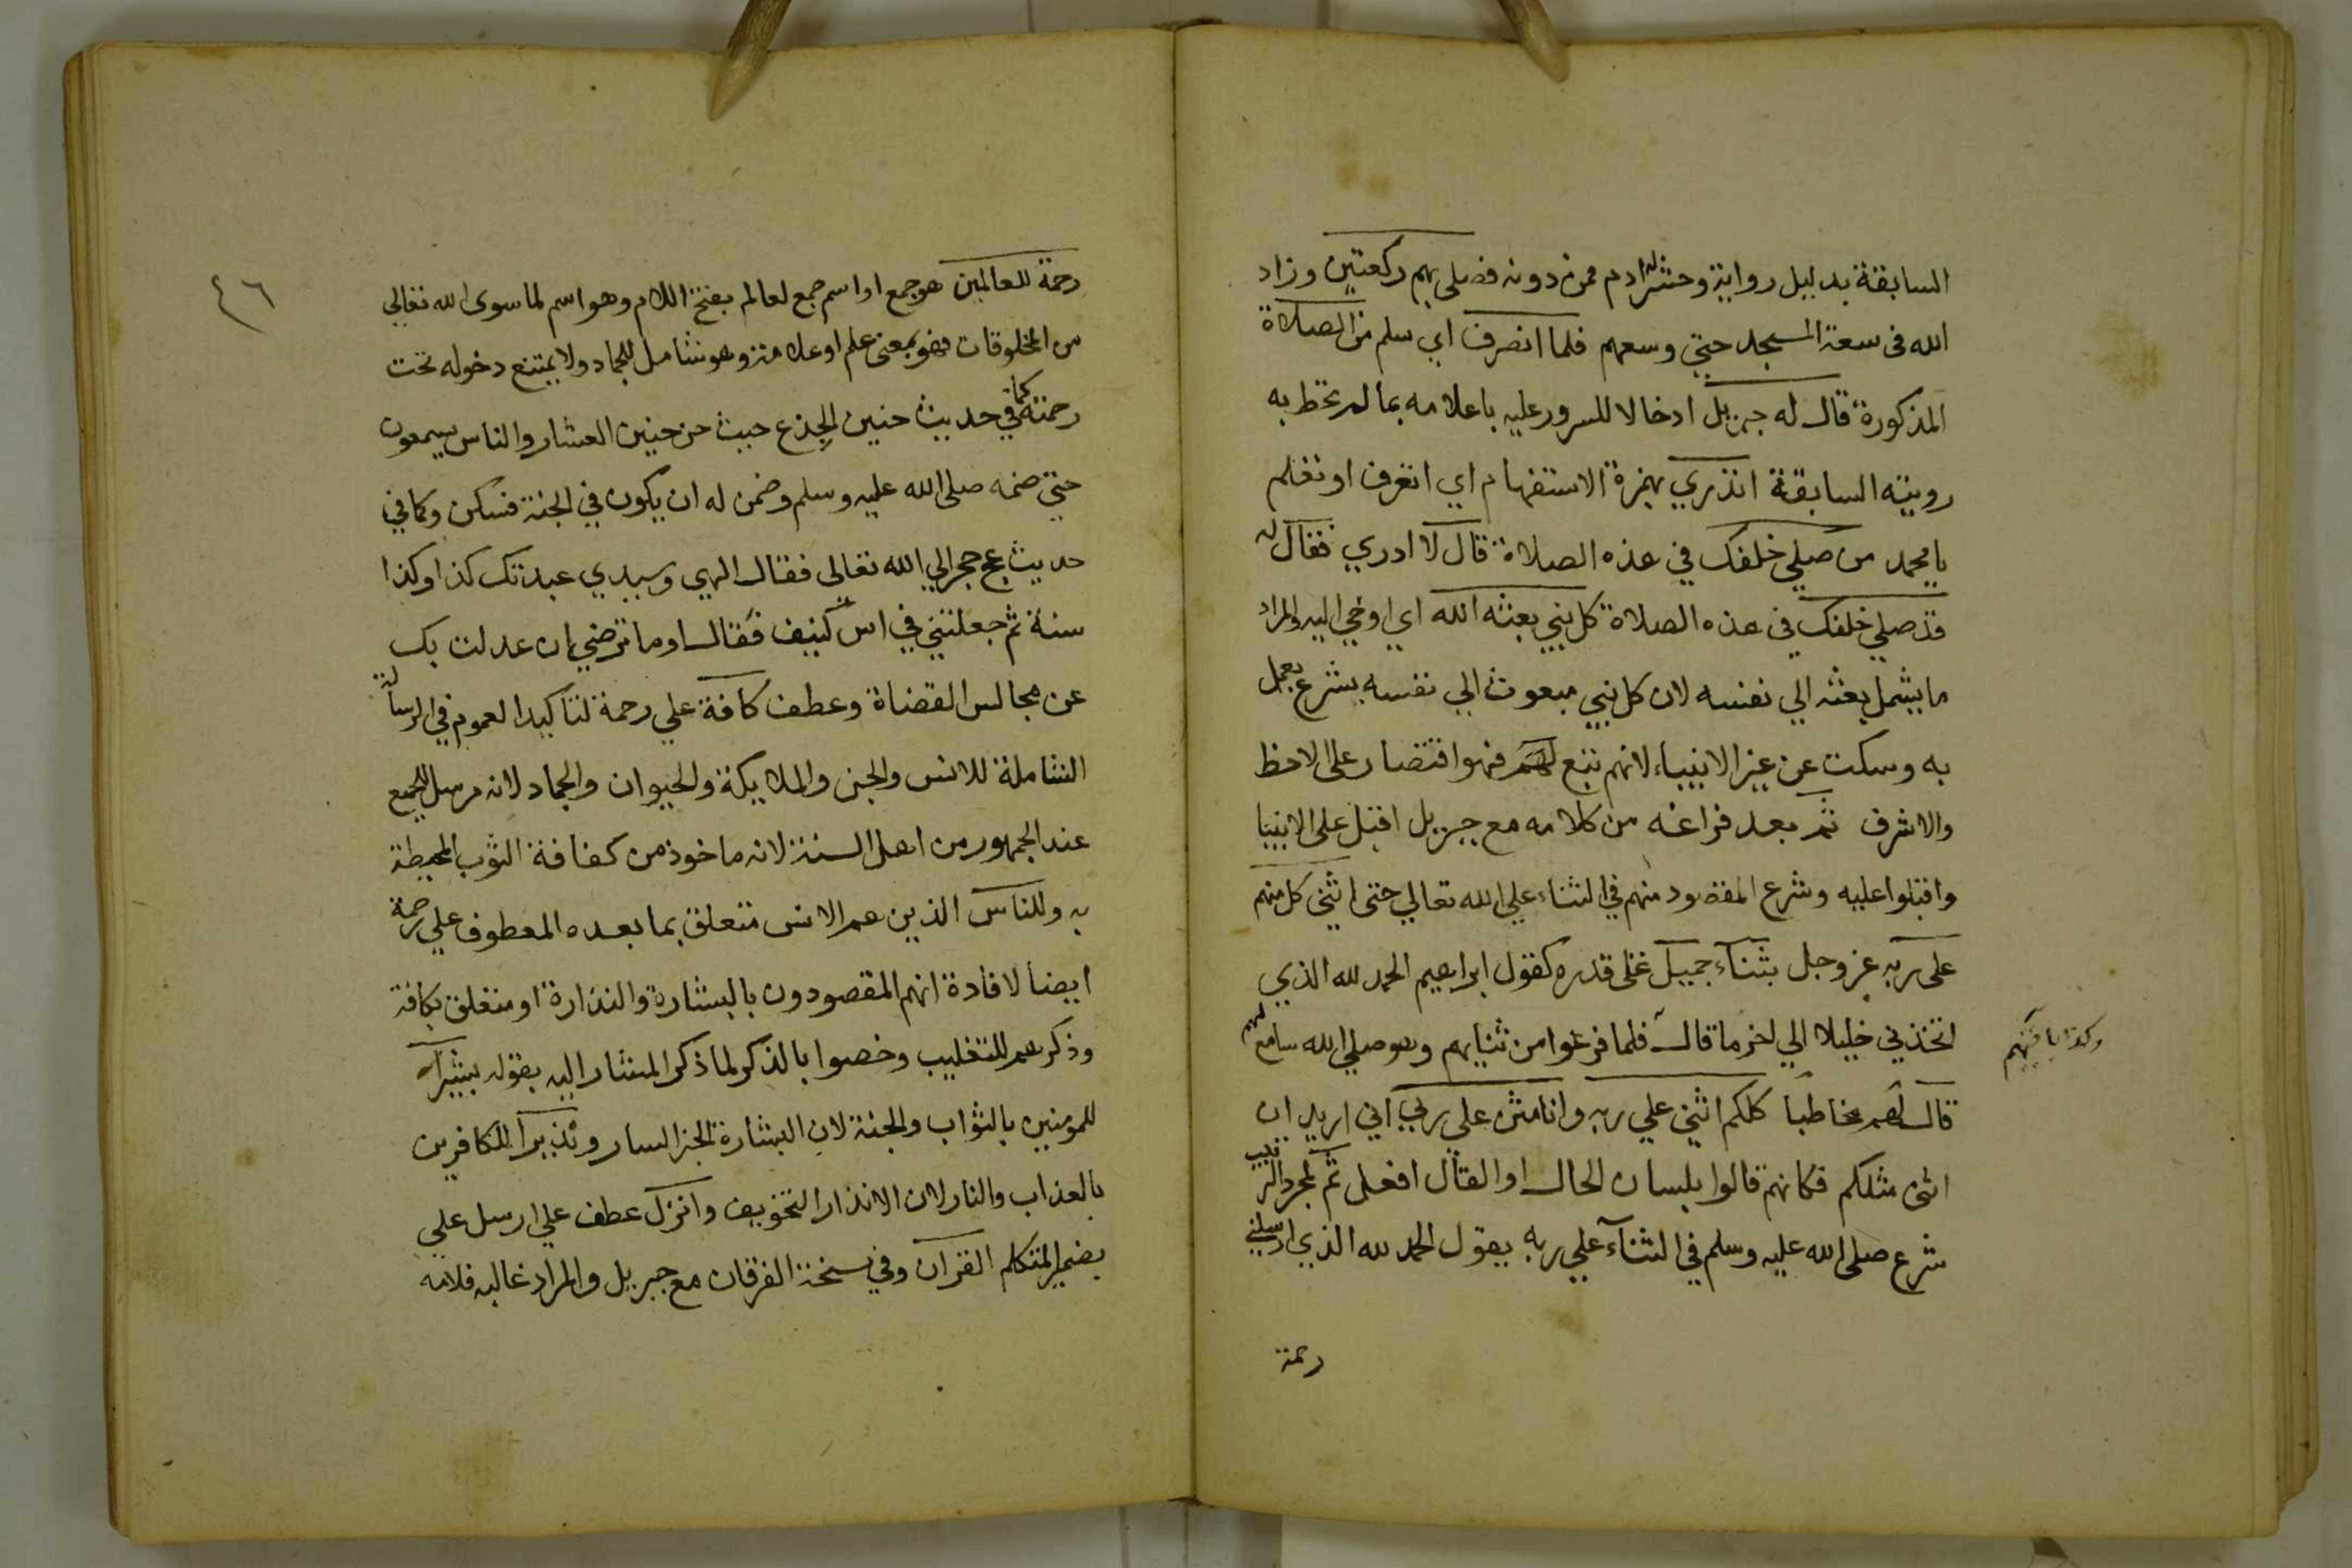 السابقة بدليل رواية وحشر له ادم فمن دونه فصلى بهم ركعتين وزاد
الله في سعة المسجد حتي وسعهم فلما انصرف اي سلم من الصلاة
المذكورة قال له جبريل ادخالا للسرور عليه باعلامه بما لم تحط به
رويته السابقة اتدري بهمزة الاستفهام اي اتعرف او تعلم
يا محمد من صلي خلفك في هذه الصلاة قال لا ادري فقال له
قد صلي خلفك في هذه الصلاة كل نبي بعثه الله اي اوحي اليه والمراد
ما يشمل بعثه الي نفسه لان كل نبي مبعوث الي نفسه بشرع يعمل
به وسكت عن غير الانبياء لانهم تبع لهم فهو اقتصار على الاحظ
والاشرف ثم بعد فراغه من كلامه مع جبريل اقبل على الانبيا
واقبلوا عليه وشرع المقصود منهم في الثناء علي الله تعالي حتى اثنى كل منهم
على ربه عز وجل بثناء جميل على قدره كقول ابراهيم الحمد لله الذي
اتخذني خليلا الي اخر ما قال فلما فرغوا من ثنايهم وهو صلي الله سامع لهم
وكذا باقيهم
قال لهم مخاطبا كلكم اثني علي ربه وانا مثن علي ربي اني اريد ان
اثني مثلكم فكانهم قالوا بلسان الحال او القال افعل ثم لمجرد الترتيب
شرع صلى الله عليه وسلم في الثناء علي ربه يقول الحمد لله الذي ارسلني
رحمة
٤٦
رحمة للعالمين هو جمع او اسم جمع لعالم بفتح اللام وهو اسم لما سوى الله تعالي
من المخلوقات فهو بمعنى علم او علامة وهو شامل للجماد ولا يمتنع دخوله تحت
رحمته كما في حديث حنين الجذع حيث حن حنين العشار والناس يسمعون
حتي ضمه صلى الله عليه وسلم وضمن له ان يكون في الجنة فسكن وكما في
حديث عج حجر الي الله تعالى فقال الهي وسيدي عبدتك كذا وكذا
سنة ثم جعلتني في اس كنيف فقال او ما ترضي ان عدلت بك
عن مجالس القضاة وعطف كافة علي رحمة لتاكيد العموم في الرسالة
الشاملة للانس والجن والملايكة والحيوان والجماد لانه مرسل للجميع
عند الجمهور من اهل السنة لانه ماخوذ من كفافة الثوب المحيطة
به وللناس الذين هم الانس متعلق بما بعده المعطوف علي رحمة
ايضا لافادة انهم المقصودون بالبشارة والنذارة او متعلق بكافة
وذكرهم للتغليب وخصوا بالذكر لما ذكر المشار اليه بقوله بشيرا
للمومنين بالثواب والجنة لان البشارة الخبر السار ونذيرا للكافرين
بالعذاب والنار لان الانذار التخويف وانزل عطف علي ارسل علي
بضمير المتكلم القران وفي نسخة الفرقان مع جبريل والمراد غالبه فلانه